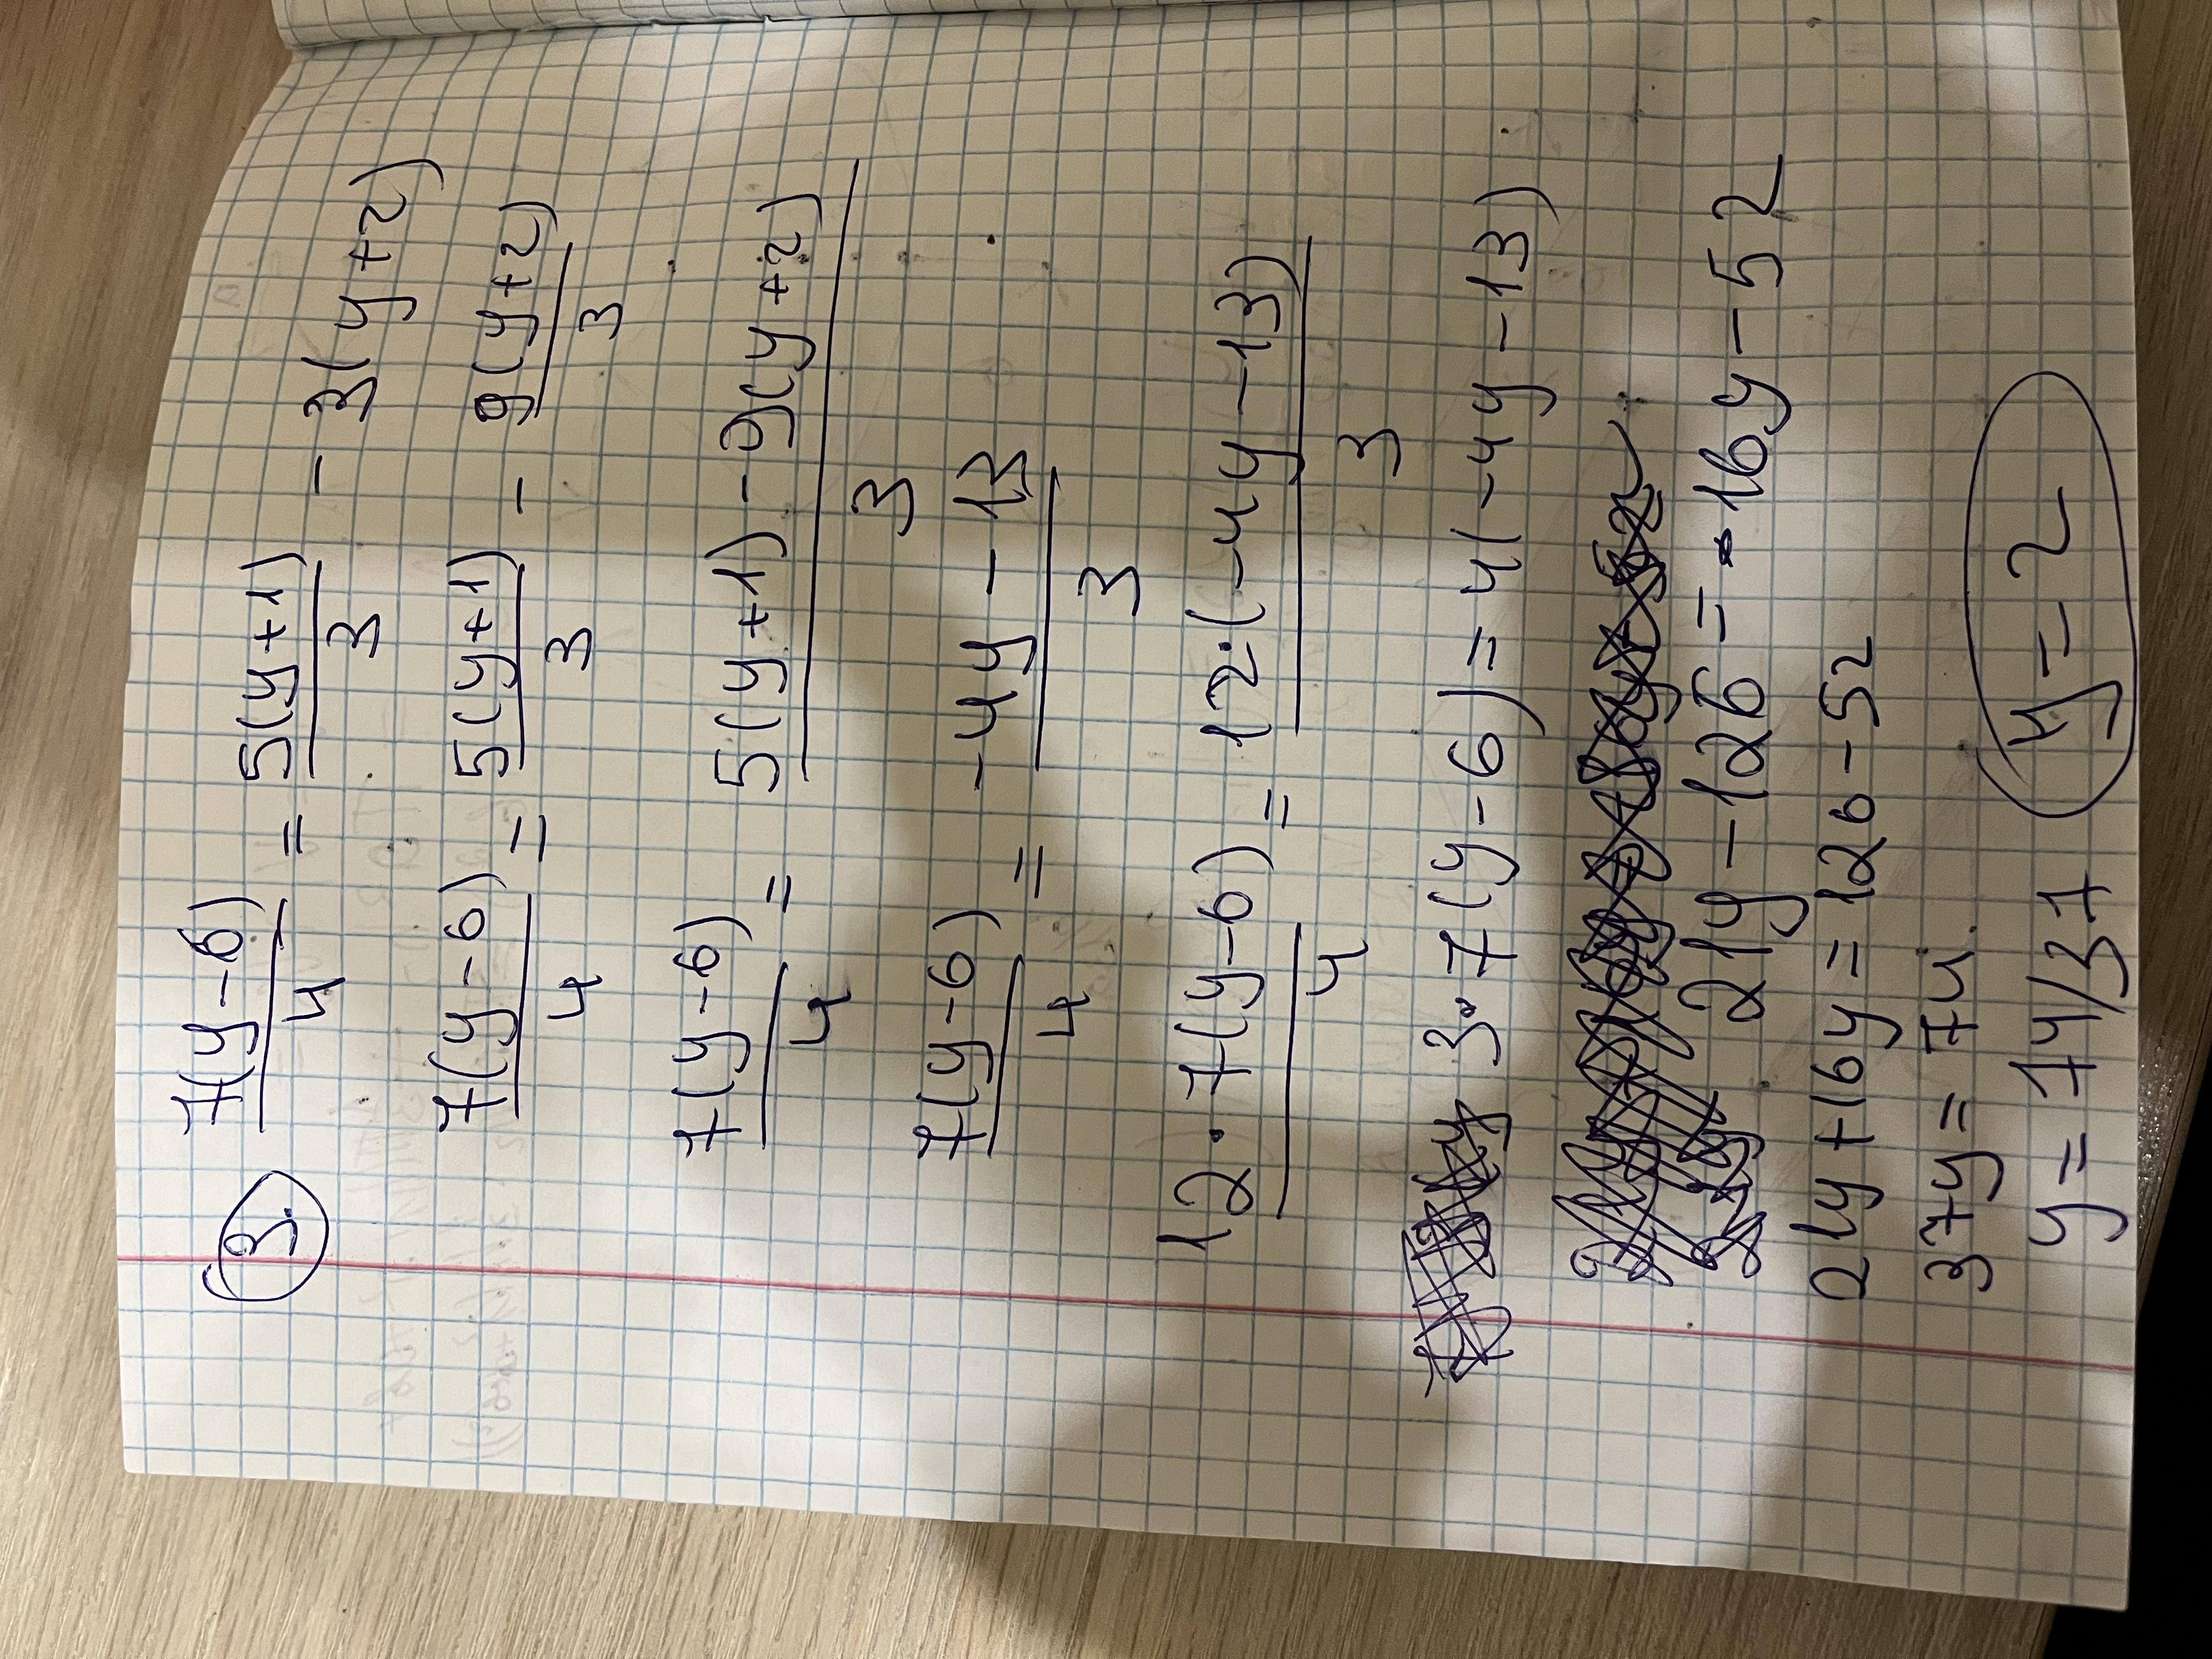 3. 7(y-6)/4 = 5(y+1)/3 - 3(y+2)
7(y-6)/4 = 5(y+1)/3 - 9(y+2)/3
7(y-6)/4 = 5(y+1)-9(y+2)/3
7(y-6)/4 = -4y-13/3
12·7(y-6)/4 = 12·(-4y-13)/3
3·7(y-6)=4(-4y-13)
21y-126=-16y-52
21y+16y=126-52
37y=74
y=74/37 y=2